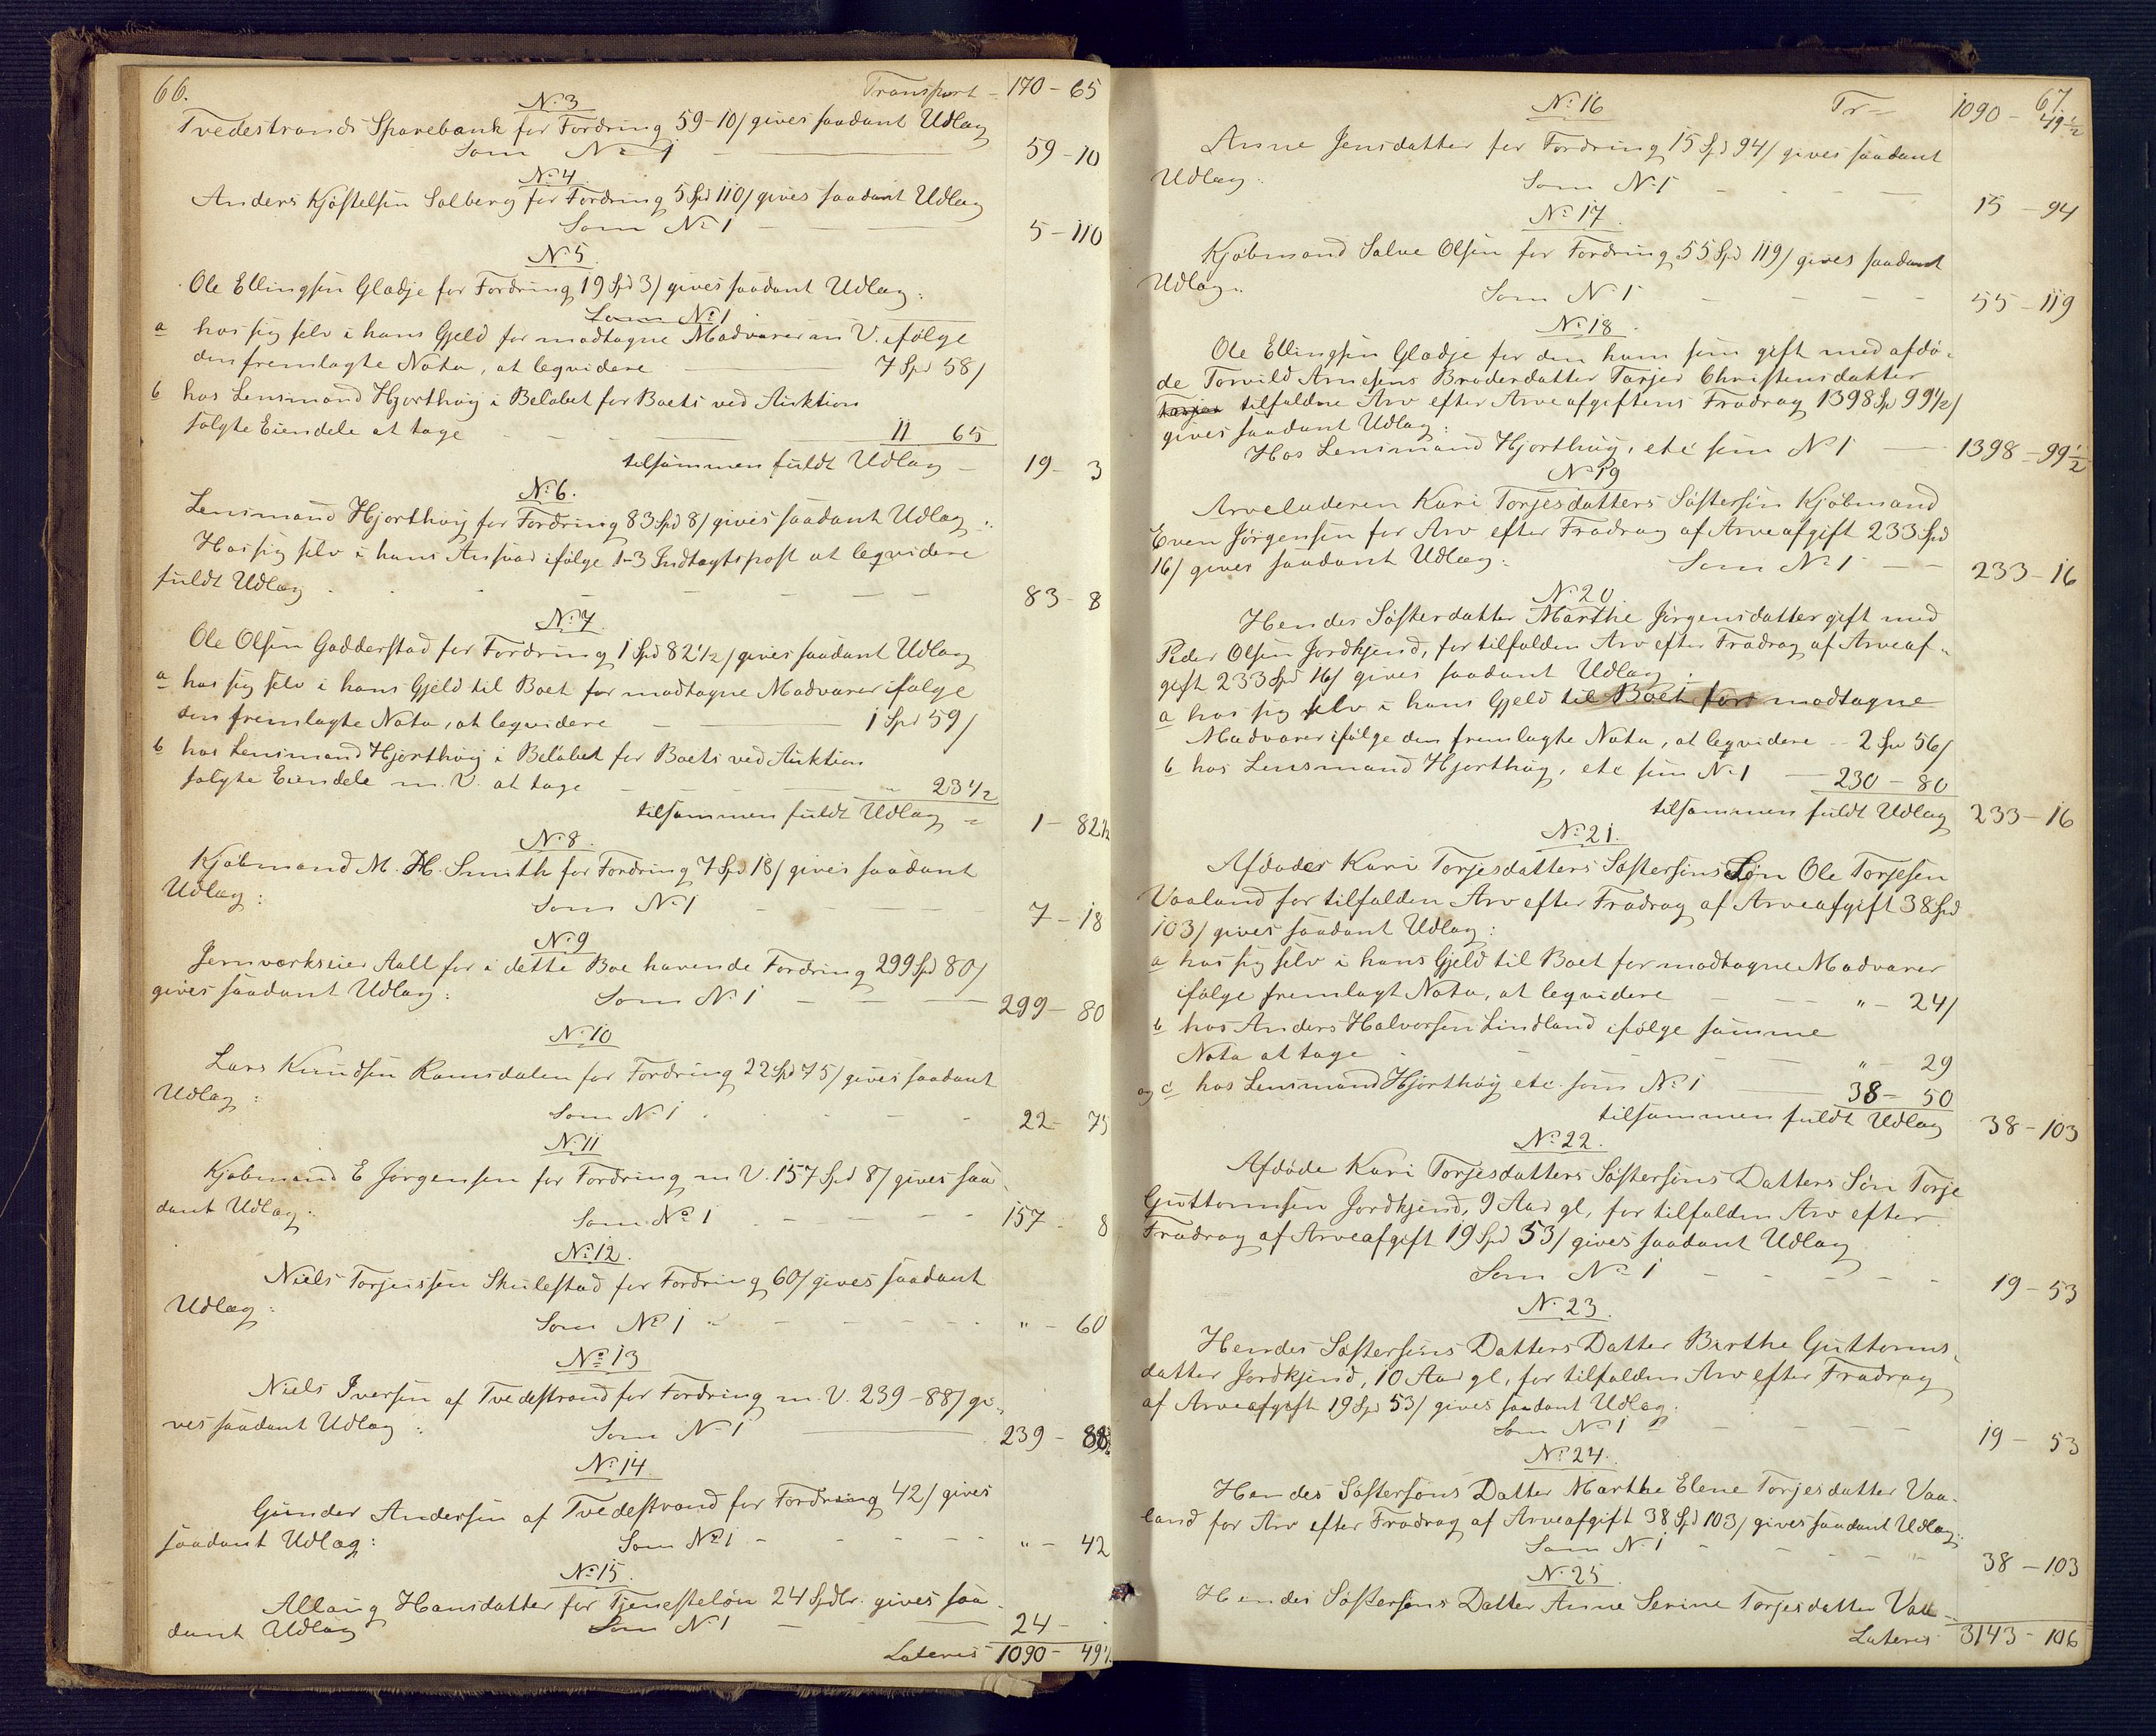 66. Transport - 170 - 65
No 3
Tvedestrands Sparebank for Fordring 59-10/ gives saadant Udlæg
Som No 1 - 59 - 10
No 4.
Anders Kjøstelsen Solberg for Fordring 5 Spd 110/ gives saadant Udlæg
Som No 1 - 5 - 110
No 5.
Ole Ellingsen Gladje for Fordring 19 Spd 3/ gives saadant Udlæg:
Som No 1
a hos sig selv i hans Gjeld for modtagne Madvarer m V. ifølge
den fremlagte Nota, at leqvidere 7 Spd 58/
b hos Lensmand Hjorthøy i Beløbet for Boets ved Auktion
solgte Eiendele at tage 11 65
tilsammen fuldt Udlæg - 19 - 3
No 6.
Lensmand Hjorthøy for Fordring 83 Spd 8/ gives saadant Udlæg:
Hos sig selv i hans Ansvar ifølge 1-3 Indtægtspost at leqvidere
fuldt Udlæg - 83 - 8
No 7.
Ole Olsen Godderstad for Fordring 1 Spd 82 1/2/ gives saadant Udlæg
a hos sig selv i hans Gjeld til Boet for modtagne Madvarer ifølge
den fremlagte Nota, at leqvidere 1 Spd 59/
b hos Lensmand Hjorthøy i Beløbet for Boets ved Auktion
solgte Eiendele m. V. at tage " 23 1/2
tilsammen fuldt Udlæg - 1 - 82 1/2
No 8.
Kjøbmand M. H. Smith for Fordring 7 Spd 18/ gives saadant
Udlæg:
Som No 1 - 7 - 18
No 9
Jernværkseier Aall for i dette Boe havende Fordring 299 Spd 80/
gives saadant Udlæg: Som No 1 - 299 - 80
No 10
Lars Knudsen Ramsdalen for Fordring 22 Spd 75/ gives saadant
Udlæg:
Som No 1 - 22 - 75
No 11
Kjøbmand E Jørgensen for Fordring m V. 157 Spd 8/ gives saa-
dant Udlæg: Som No 1 - 157 - 8
No 12.
Niels Torjussen Skulestad for Fordring 60/ gives saadant
Udlæg:
Som No 1 - " - 60
No 13
Niels Iversen af Tvedestrand for Fordring m. V. 239-88/ gi-
ves saadant Udlæg: Som No 1 239 - 88
No 14.
Gunder Andersen af Tvedestrand for Fordring 42/ gives
saadant Udlæg: Som No 1 - " - 42
No 15.
Allaug Hansdatter for Tjenesteløn 24 Spdlr. gives saa-
dant Udlæg Som No 1 - 24 -
Lateris 1090 - 49 1/2
67.
No 16 Tr= 1090 - 49 1/2
Anne Jensdatter for Fordring 15 Spd 94/ gives saadant
Udlæg: Som No 1 - 15 - 94
No 17.
Kjøbmand Salve Olsen for Fordring 55 Spd 119/ gives saadant
Udlæg: Som No 1 - 55 - 119
No 18.
Ole Ellingsen Gladje for den ham som gift med afdø-
de Torvild Arnesens Broderdatter Tarjer Christensdatter
Tarjer tilfaldne Arv efter Arveafgiftens Fradrag 1398 Sp 99 1/2/
gives saadant Udlæg:
Hos Lensmand Hjorthøy, etc som No 1 - 1398 - 99 1/2
No 19
Arveladeren Kari Torjesdatters Søstersøn Kjøbmand
Even Jørgensen for Arv efter Fradrag af Arveafgift 233 Spd
16/ gives saadant Udlæg: Som No 1 - 233 - 16
No 20.
Hendes Søsterdatter Marthe Jørgensdatter gift med
Peder Olsen Jordkjend, for tilfalden Arv efter Fradrag af Arveaf-
gift 233 Spd 16/ gives saadant Udlæg:
a hos sig selv i hans Gjeld til Boet for modtagne
Madvarer ifølge den fremlagte Nota, at leqvidere - 2 Spd 56/
b hos Lensmand Hjorthøy, etc som No 1 - 230 - 80
tilsammen fuldt Udlæg 233 - 16
No 21.
Afdødes Kari Torjesdatters Søstersøns Søn Ole Torjesen
Vaaland for tilfalden Arv efter Fradrag af Arveafgift 38 Spd
103/ gives saadant Udlæg:
a hos sig selv i hans Gjeld til Boet for modtagne Madvarer
ifølge fremlagt Nota, at leqvidere " - 24/
b hos Anders Halvorsen Lindland ifølge samme
Nota at tage " - 29
og c hos Lensmand Hjorthøy etc. som No 1 38 - 50
tilsammen fuldt Udlæg 38 - 103
No 22.
Afdøde Kari Torjesdatters Søstersøns Datters Søn Torje
Guttormsen Jordkjend, 9 Aar gl, for tilfalden Arv efter
Fradrag af Arveafgift 19 Spd 53/ gives saadant Udlæg
Som No 1 - 19 - 53
No 23.
Hendes Søstersøns Datters Datter Birthe Guttorms-
datter Jordkjend, 10 Aar gl, for tilfalden Arv efter Fradrag
af Arveafgift 19 Spd 53/ gives saadant Udlæg.
Som No 1 - 19 - 53
No 24.
Hendes Søstersøns Datter Marthe Elene Torjesdatter Vaa-
land for Arv efter Fradrag af Arveafgift 38 Spd 103/ gives saadant Udlæg:
Som No 1 - 38 - 103
No 25.
Hendes Søstersøns Datter Anne Serine Torjesdatter Vaa-
Lateris 3143 - 106